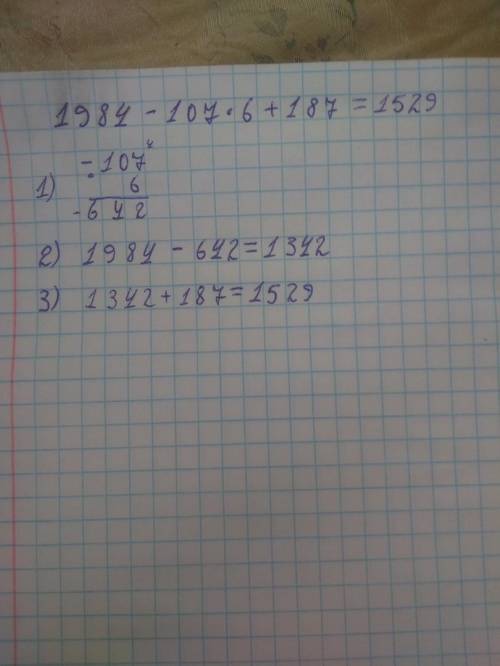 1984 - 107 · 6 + 187 = 1529
1) - 107⁴
· 6
- 6 4 2
2) 1984 - 642 = 1342
3) 1342 + 187 = 1529